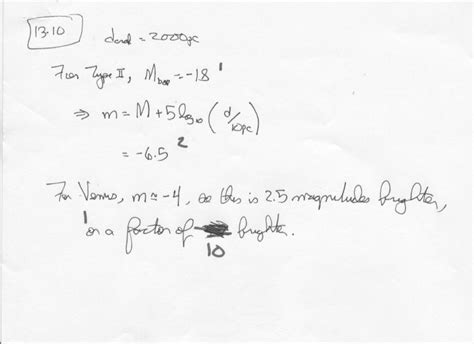 13.10
d = 2000pc
For Type II, M = -18 1
⇒ m = M + 5 log10 (d/10pc)
= -6.5 2
For Venus, m ≃ -4, so this is 2.5 magnitudes brighter,
1 or a factor of 10 brighter.